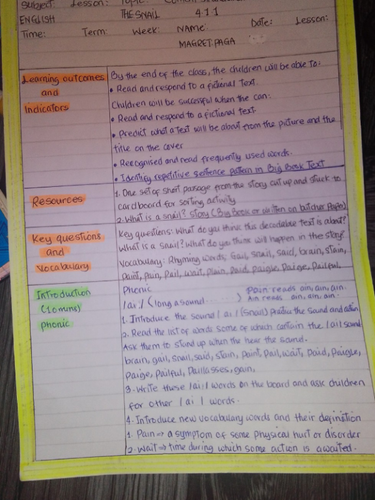 Subject: Lesson: Topic:
ENGLISH THE SNAIL 4.1.1
Time: Term: Week: NAME Date: Lesson:
MAGRET PAGA
Learning outcomes and Indicators
By the end of the class, the children will be able to:
• Read and respond to a fictional Text.
Children will be successful when the can:
• Read and respond to a fictional text
• Predict what a text will be about from the picture and the
title on the cover
• Recognised and read frequently used words.
• Identify repetitive sentence pattern in Big Book Text
Resources
1. One set of short passage from the story cut up and stuck to
cardboard for sorting activity
2. What is a snail? story (Big Book or written on butcher Paper)
Key questions and Vocabulary
Key questions: What do you think this decodable text is about?
What is a snail? What do you think will happen in the story?
Vocabulary: Rhyming words, Gail, snail, said, brain, stain,
paint, pain, Pail, wait, plain, Paid, Paigle, Paige, Pailful,
Introduction
(10mins)
phonic
Phonic
/ai/ (long a sound)
Pain reads ain, ain, ain.
1. Introduce the sound /ai/ (Snail) practice the sound and action
2. Read the list of words some of which contain the /ai/ sound
Ask them to stand up when the hear the sound.
brain, gail, snail, said, stain, paint, pail, wait, paid, Paigle,
Paige, Pailful, Paillasses, gain.
3. Write these /ai/ words on the board and ask children
for other /ai/ words.
4. Introduce new vocabulary words and their definition
1. Pain → a symptom of some physical hurt or disorder
2. Wait → time during which some action is awaited.